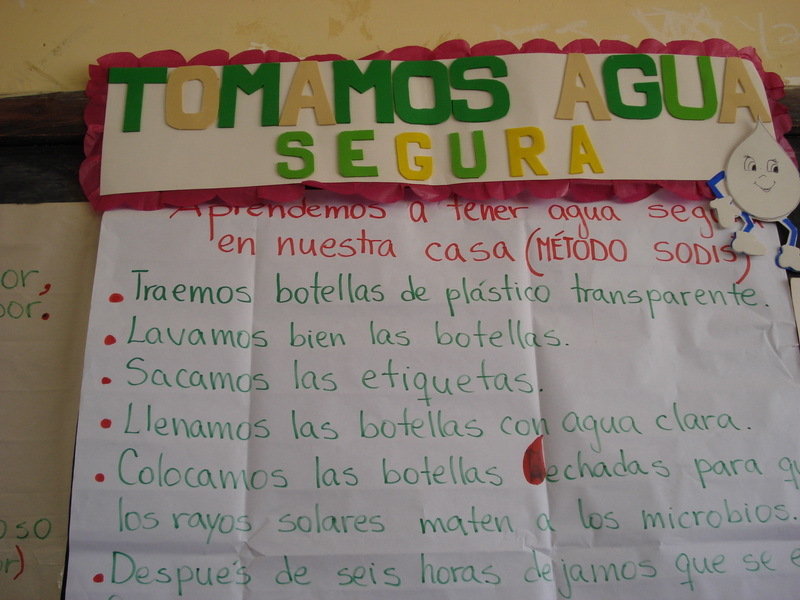 TOMAMOS AGUA
SEGURA
Aprendemos a tener agua
en nuestra casa (MÉTODO SODIS)
• Traemos botellas de plástico transparente.
• Lavamos bien las botellas.
• Sacamos las etiquetas.
• Llenamos las botellas con agua clara.
• Colocamos las botellas echadas para
los rayos solares maten a los microbios.
• Después de seis horas dejamos que se
or,
or.
oso
r)